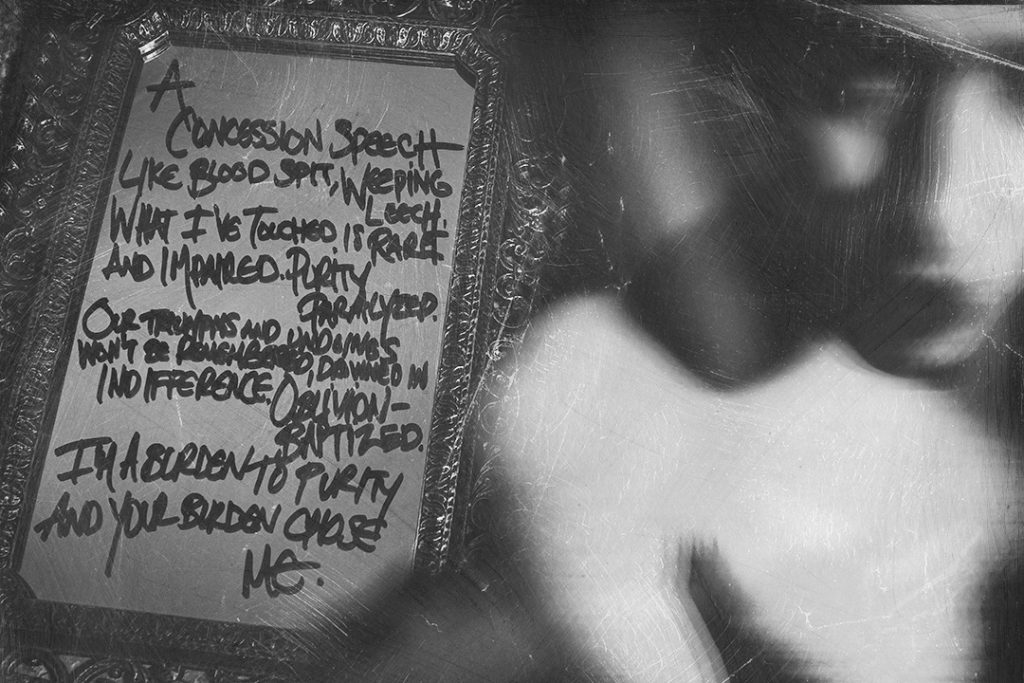 A
CONCESSION SPEECH
LIKE BLOOD SPIT, WEEPING
LEECH.
WHAT I'VE TOUCHED IS RARE
AND IMPAIRED. PURITY
PARALYZED.
OUR TRIUMPHS AND UNDOINGS
WON'T BE REMEMBERED, DROWNED IN
INDIFFERENCE. OBLIVION-
BAPTIZED.
I'M A BURDEN TO PURITY
AND YOUR BURDEN CHOSE
ME.